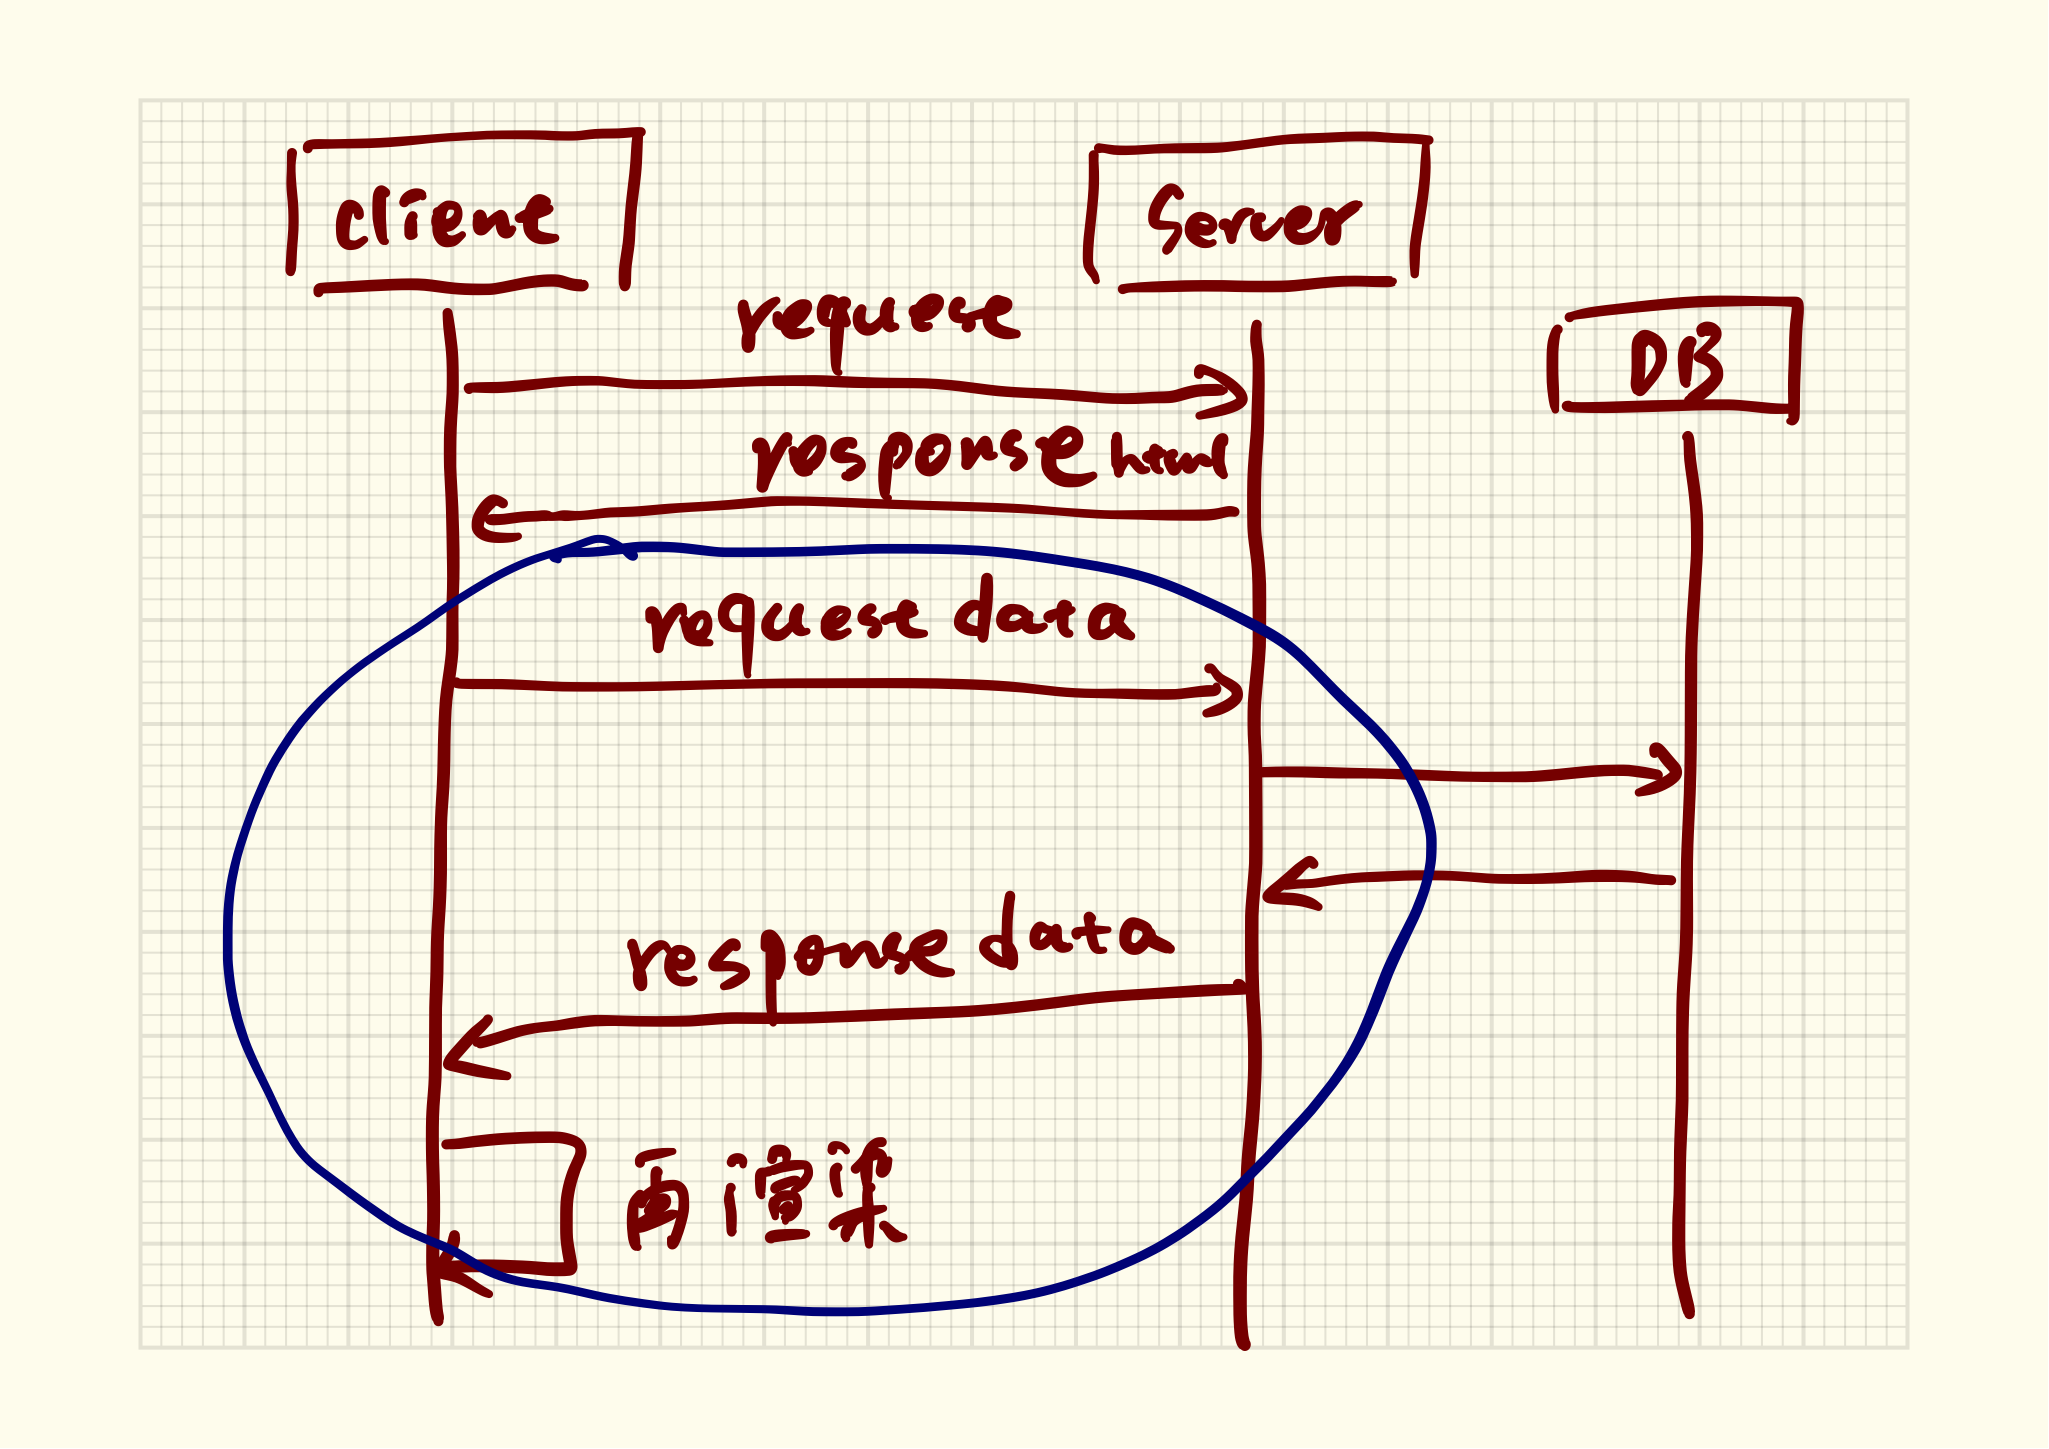 client
Server
DB
request
response html
request data
response data
再渲染